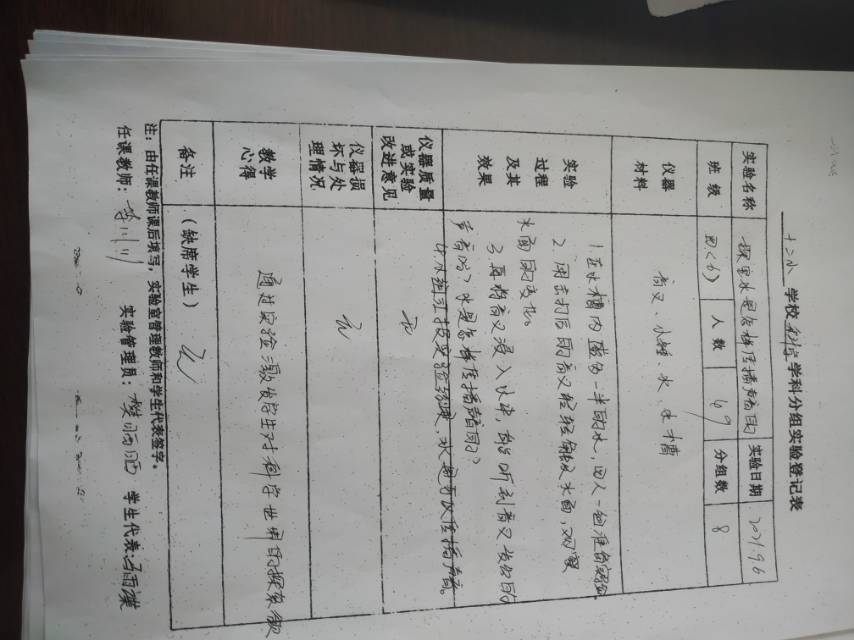 十二小 学校 科学 学科分组实验登记表
实验名称 探究水是怎样传播声音的 实验日期 2021.9.6
班级 四(6) 人数 49 分组数 8
仪器材料 音叉、小锤、水、水槽
实验过程及其效果
1.在水槽内盛多一半的水,四人一组准备实验。
2.用击打后的音叉轻轻触及水面,观察
水面的变化。
3.再将音叉浸入水中,能听到音叉发出的
声音吗?水是怎样传播声音的?
4.小组汇报实验结果,水是可以传播声音。
仪器质量或实验改进意见 无
仪器损坏与处理情况 无
教学心得 通过实验激发学生对科学世界的探索欲
备注 (缺席学生) 无
注:由任课教师课后填写,实验室管理教师和学生代表签字。
任课教师: 实验管理员: 学生代表: